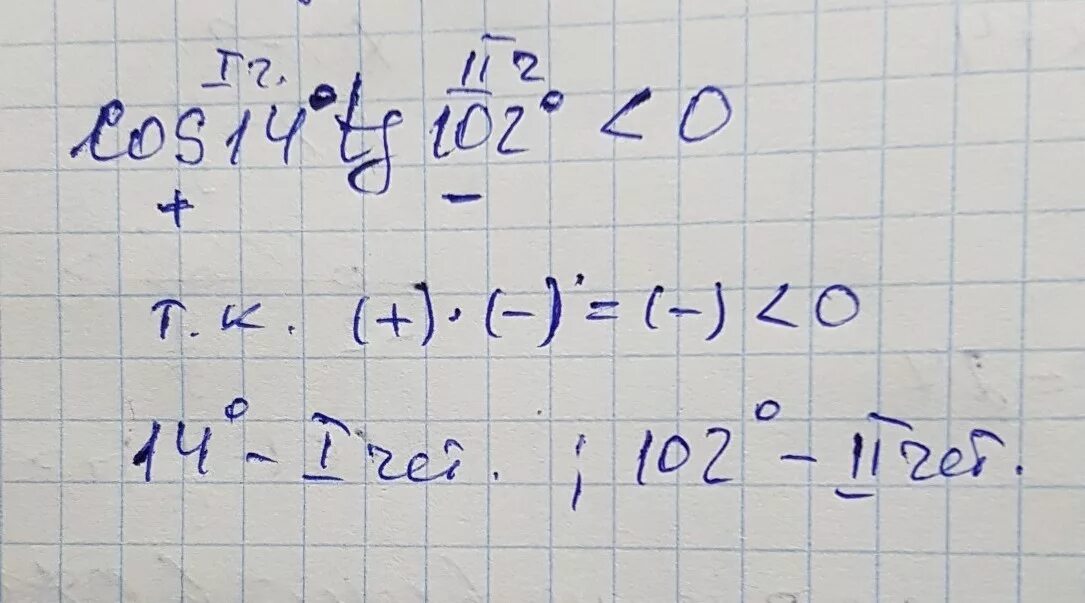 I г. II г
cos14° tg 102° < 0
+ −
т.к. (+)·(−) = (−) < 0
14° – I чет. ; 102° – II чет.